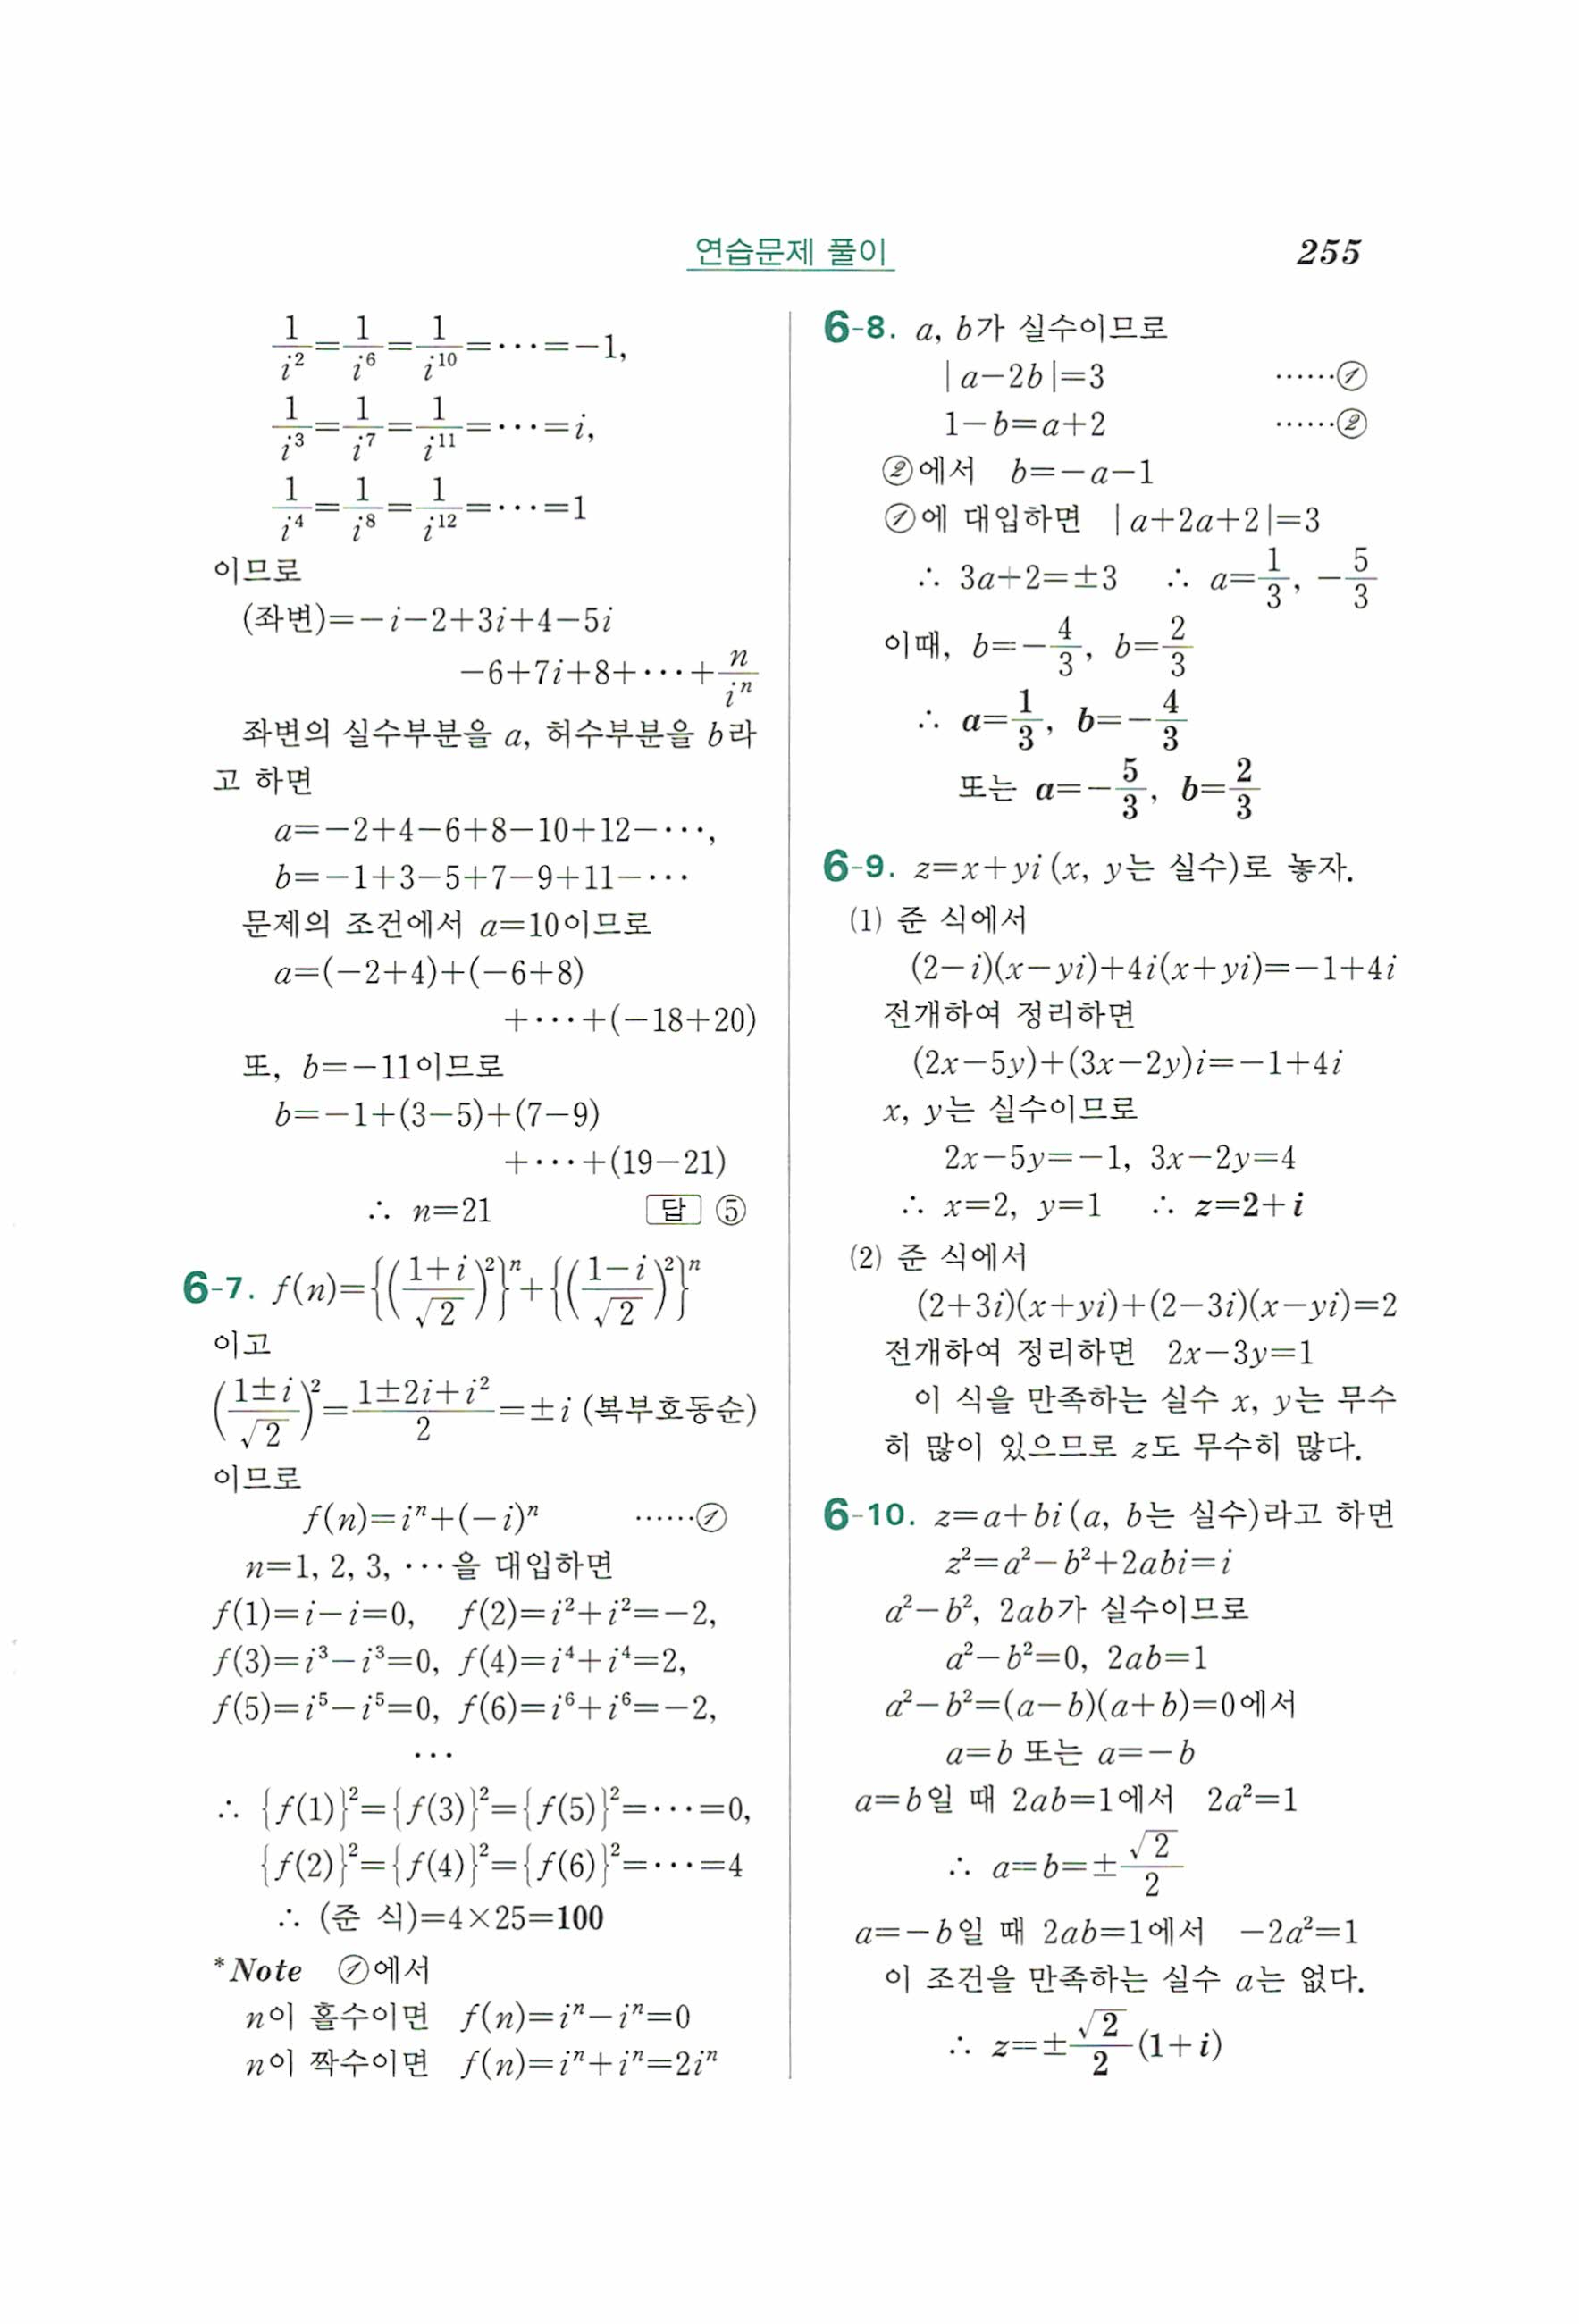 연습문제 풀이 255
1/i² = 1/i⁶ = 1/i¹⁰ = ⋯ = −1,
1/i³ = 1/i⁷ = 1/i¹¹ = ⋯ = i,
1/i⁴ = 1/i⁸ = 1/i¹² = ⋯ = 1
이므로
(좌변)=−i−2+3i+4−5i
−6+7i+8+⋯+n/iⁿ
좌변의 실수부분을 a, 허수부분을 b라
고 하면
a=−2+4−6+8−10+12−⋯,
b=−1+3−5+7−9+11−⋯
문제의 조건에서 a=10이므로
a=(−2+4)+(−6+8)
+⋯+(−18+20)
또, b=−11이므로
b=−1+(3−5)+(7−9)
+⋯+(19−21)
∴ n=21 답 ⑤
6-7. f(n)={((1+i)/√2)²}ⁿ+{((1−i)/√2)²}ⁿ
이고
((1±i)/√2)²=(1±2i+i²)/2=±i (복부호동순)
이므로
f(n)=iⁿ+(−i)ⁿ ⋯⋯①
n=1, 2, 3, ⋯을 대입하면
f(1)=i−i=0, f(2)=i²+i²=−2,
f(3)=i³−i³=0, f(4)=i⁴+i⁴=2,
f(5)=i⁵−i⁵=0, f(6)=i⁶+i⁶=−2,
⋯
∴ {f(1)}²={f(3)}²={f(5)}²=⋯=0,
{f(2)}²={f(4)}²={f(6)}²=⋯=4
∴ (준 식)=4×25=100
*Note ①에서
n이 홀수이면 f(n)=iⁿ−iⁿ=0
n이 짝수이면 f(n)=iⁿ+iⁿ=2iⁿ
6-8. a, b가 실수이므로
|a−2b|=3 ⋯⋯①
1−b=a+2 ⋯⋯②
②에서 b=−a−1
①에 대입하면 |a+2a+2|=3
∴ 3a+2=±3 ∴ a=1/3, −5/3
이때, b=−4/3, b=2/3
∴ a=1/3, b=−4/3
또는 a=−5/3, b=2/3
6-9. z=x+yi (x, y는 실수)로 놓자.
(1) 준 식에서
(2−i)(x−yi)+4i(x+yi)=−1+4i
전개하여 정리하면
(2x−5y)+(3x−2y)i=−1+4i
x, y는 실수이므로
2x−5y=−1, 3x−2y=4
∴ x=2, y=1 ∴ z=2+i
(2) 준 식에서
(2+3i)(x+yi)+(2−3i)(x−yi)=2
전개하여 정리하면 2x−3y=1
이 식을 만족하는 실수 x, y는 무수
히 많이 있으므로 z도 무수히 많다.
6-10. z=a+bi (a, b는 실수)라고 하면
z²=a²−b²+2abi=i
a²−b², 2ab가 실수이므로
a²−b²=0, 2ab=1
a²−b²=(a−b)(a+b)=0에서
a=b 또는 a=−b
a=b일 때 2ab=1에서 2a²=1
∴ a=b=±√2/2
a=−b일 때 2ab=1에서 −2a²=1
이 조건을 만족하는 실수 a는 없다.
∴ z=±√2/2(1+i)